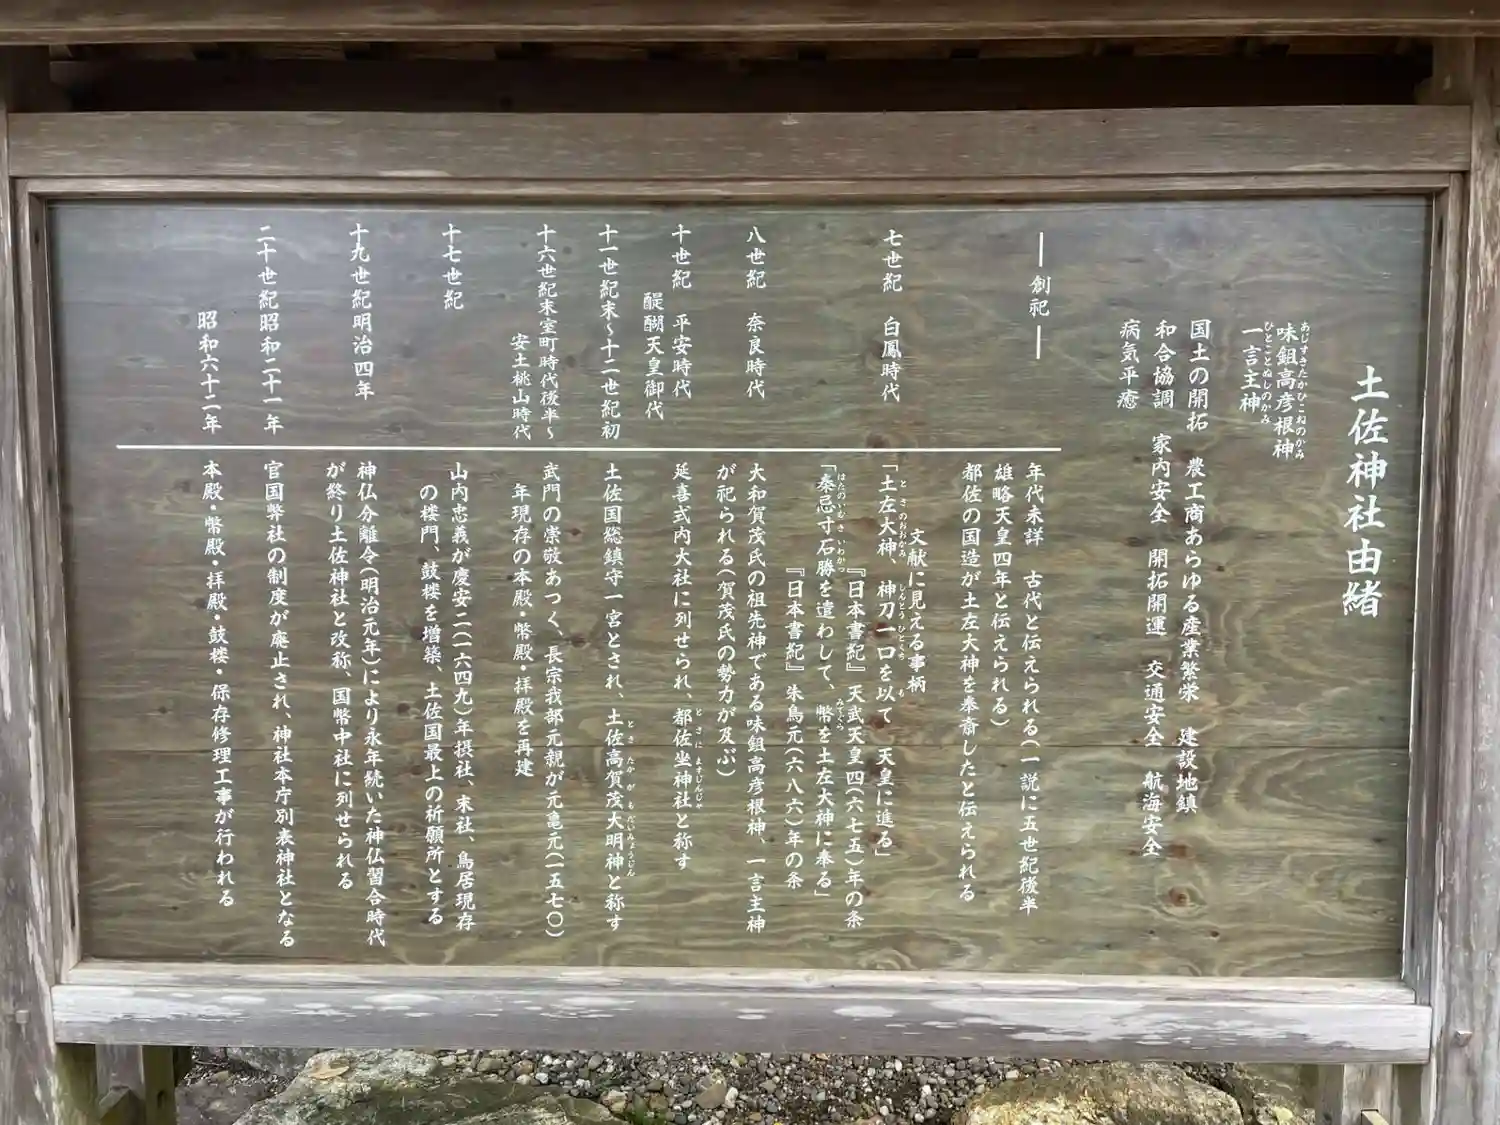 土佐神社由緒
味鉏高彦根神
あじすきたかひこねのかみ
一言主神
ひとことぬしのかみ
国土の開拓 農工商あらゆる産業繁栄 建設地鎮
和合協調 家内安全 開拓開運 交通安全 航海安全
病気平癒
―創祀―
年代未詳 古代と伝えられる(一説に五世紀後半
雄略天皇四年と伝えられる)
都佐の国造が土左大神を奉斎したと伝えられる
七世紀 白鳳時代
文献に見える事柄
「土左大神、神刀一口を以て 天皇に進る」
とさのおおかみ しんとうひとくち も
『日本書紀』天武天皇四(六七五)年の条
「秦忌寸石勝を遣わして、幣を土左大神に奉る」
はたのいむきいわかつ みてぐら
『日本書紀』朱鳥元(六八六)年の条
八世紀 奈良時代
大和賀茂氏の祖先神である味鉏高彦根神、一言主神
が祀られる(賀茂氏の勢力が及ぶ)
十世紀 平安時代
醍醐天皇御代
延喜式内大社に列せられ、都佐坐神社と称す
とさにますじんじゃ
十一世紀末~十二世紀初
土佐国総鎮守一宮とされ、土佐高賀茂大明神と称す
とさ たかがも だいみょうじん
十六世紀末室町時代後半~
安土桃山時代
武門の崇敬あつく、長宗我部元親が元亀元(一五七〇)
年現存の本殿・幣殿・拝殿を再建
十七世紀
山内忠義が慶安二(一六四九)年摂社、末社、鳥居現存
の楼門、鼓楼を増築、土佐国最上の祈願所とする
十九世紀明治四年
神仏分離令(明治元年)により永年続いた神仏習合時代
が終り土佐神社と改称、国幣中社に列せられる
二十世紀昭和二十一年
官国弊社の制度が廃止され、神社本庁別表神社となる
昭和六十二年
本殿・幣殿・拝殿・鼓楼・保存修理工事が行われる